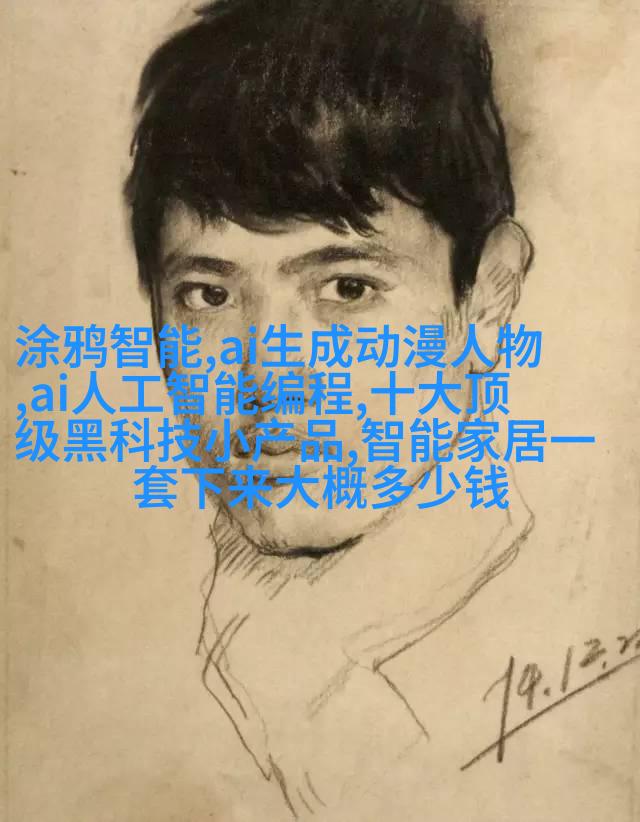 涂鸦智能,ai生成动漫人物
,ai人工智能编程,十大顶
级黑科技小产品,智能家居一
套下来大概多少钱